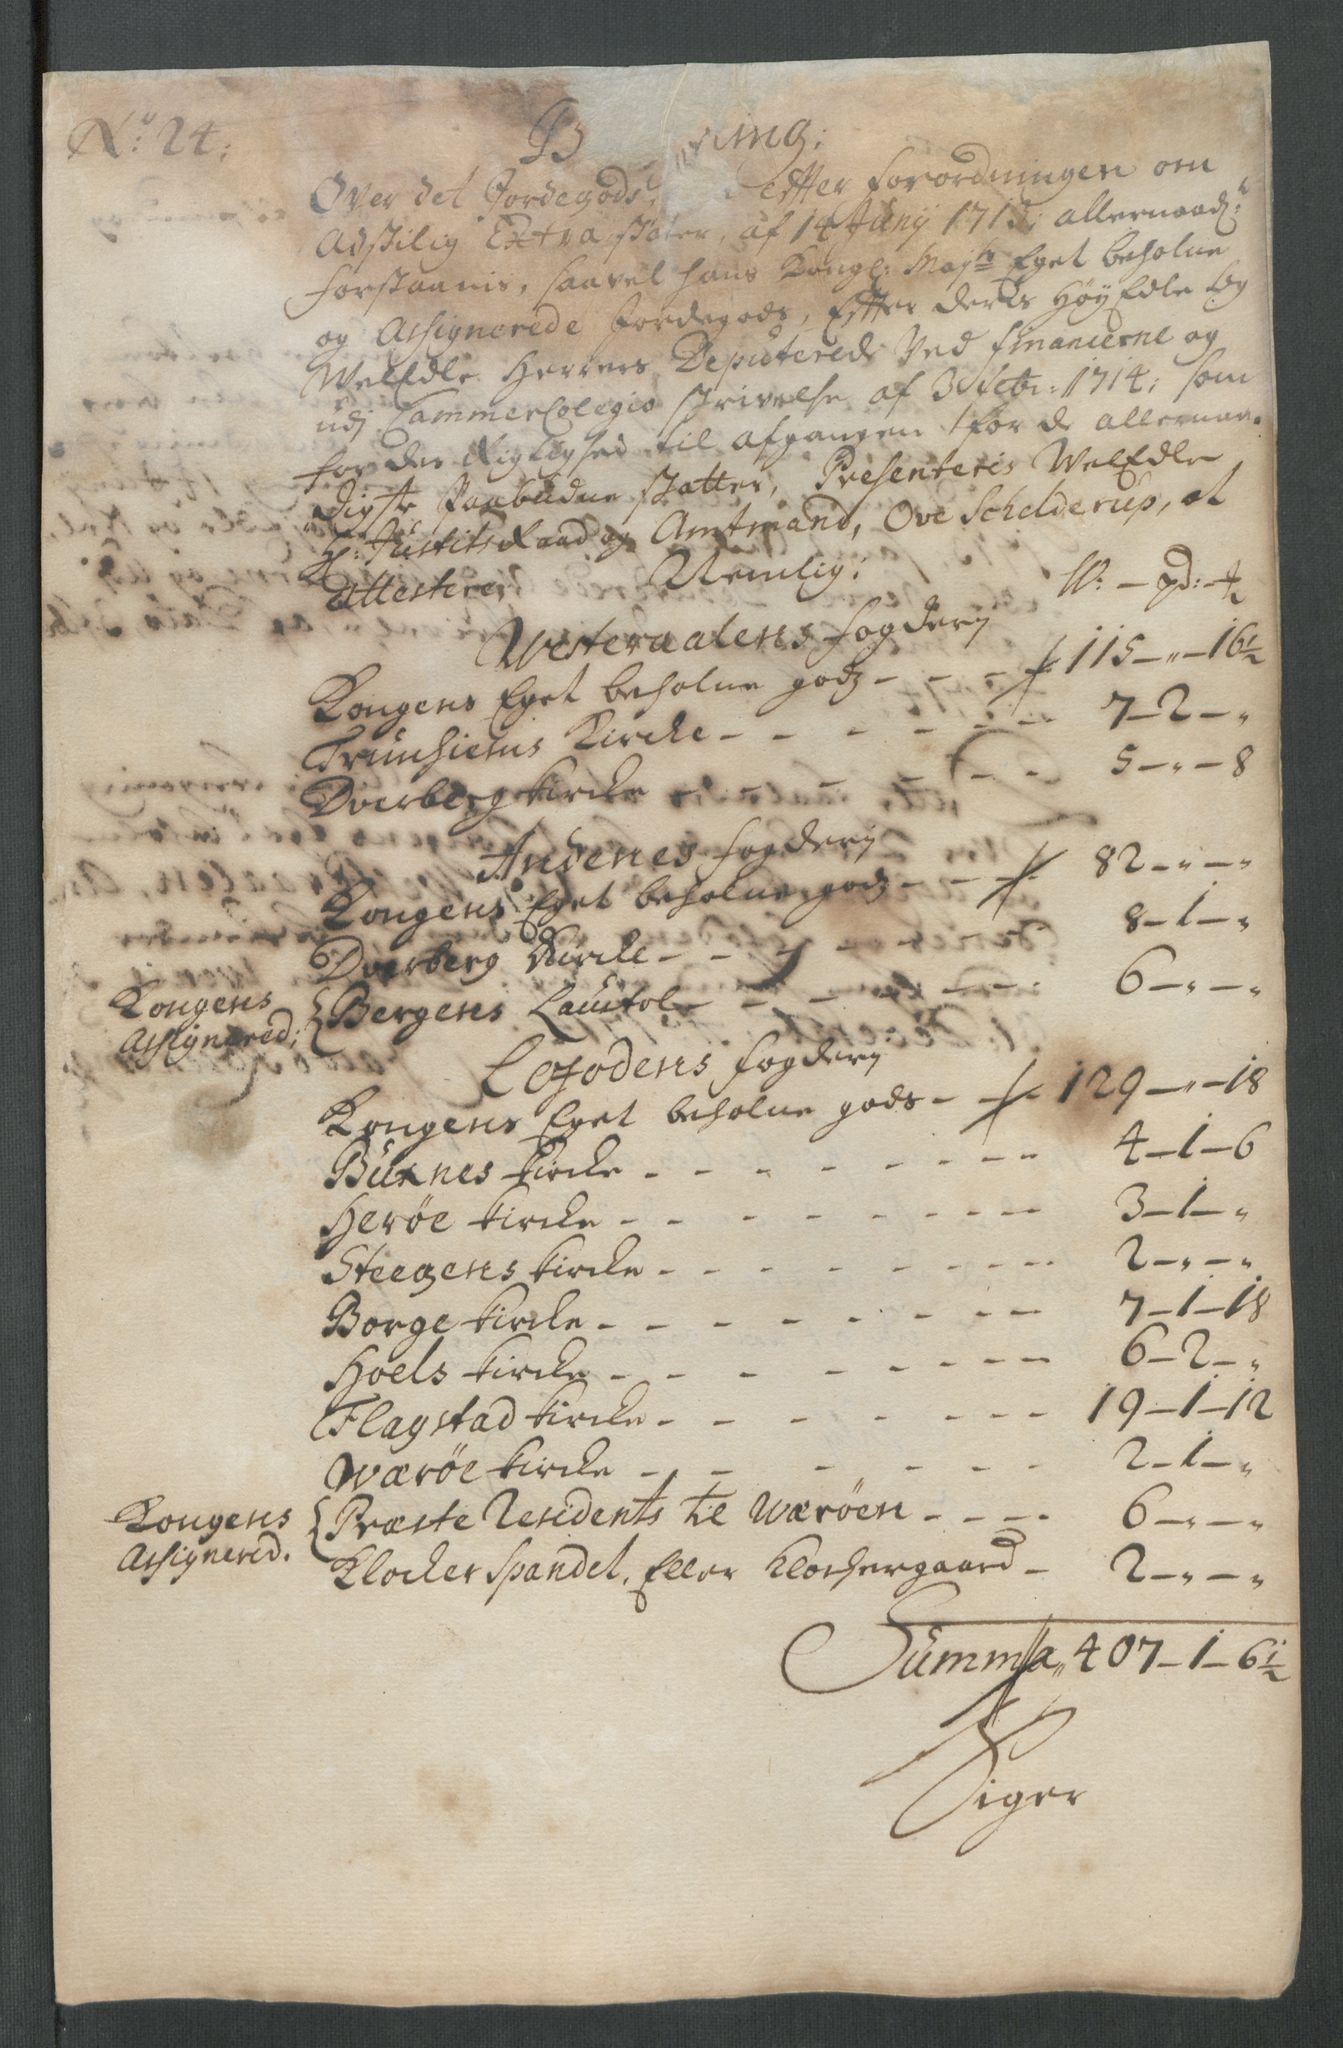 No: 24:
B ning;
Over det Jordegods, efter forordningen om
Adskilig Extra skater, af 14 Junij 1713: allernaadt:
forstaanis, saavel hans Kongl: Mayts Eget beholne
og Assignerede Jordegods, Efter deris HøyEdle og
WelEdle Herrers Deputerede Ved financierne og
udj CammerColegio skrivelse af 3 febr: 1714: som
for den Rigtighed til afgangen for de allernaa-
digste Paabudne skatter, Presenteris WelEdle
Hr: Justits Raad og Amtmand, Ove Schelderup, at
Attestere, Nemlig:
W: — pd: —
Westeraalens fogderj
Kongens Eget beholne godz - - - 115 — " — 16½
Trunhiems Kircke - - - - - - 7 — 2 — "
Dverberg kircke - - - - - - 5 — " — 8
Andenes fogderj
Kongens Eget beholne godz - - - 82 — " — "
Dverberg Kircke - - - - - - 8 — 1 — "
Kongens
Assignered; { Bergens Lauftol - - - - - - 6 — " — "
Lofodens fogderj
Kongens Eget beholne gods - - - 129 — " — 18
Buxnes kircke - - - - - - - - 4 — 1 — 6
Herøe kircke - - - - - - - - 3 — 1 — "
Steegens kircke - - - - - - - - 2 — " — "
Borge kircke - - - - - - - - 7 — 1 — 18
Hoels kircke - - - - - - - - 6 — 2 — "
Flagstad kircke - - - - - - - 19 — 1 — 12
Wærøe kircke - - - - - - - 2 — 1 — "
Kongens
Assignered. { Præste Residents til Wærøen - - - - 6 — " — "
Klocker Spandet, Eller Klockergaard - 2 — " — "
Summa 407 — 1 — 6½
Siger